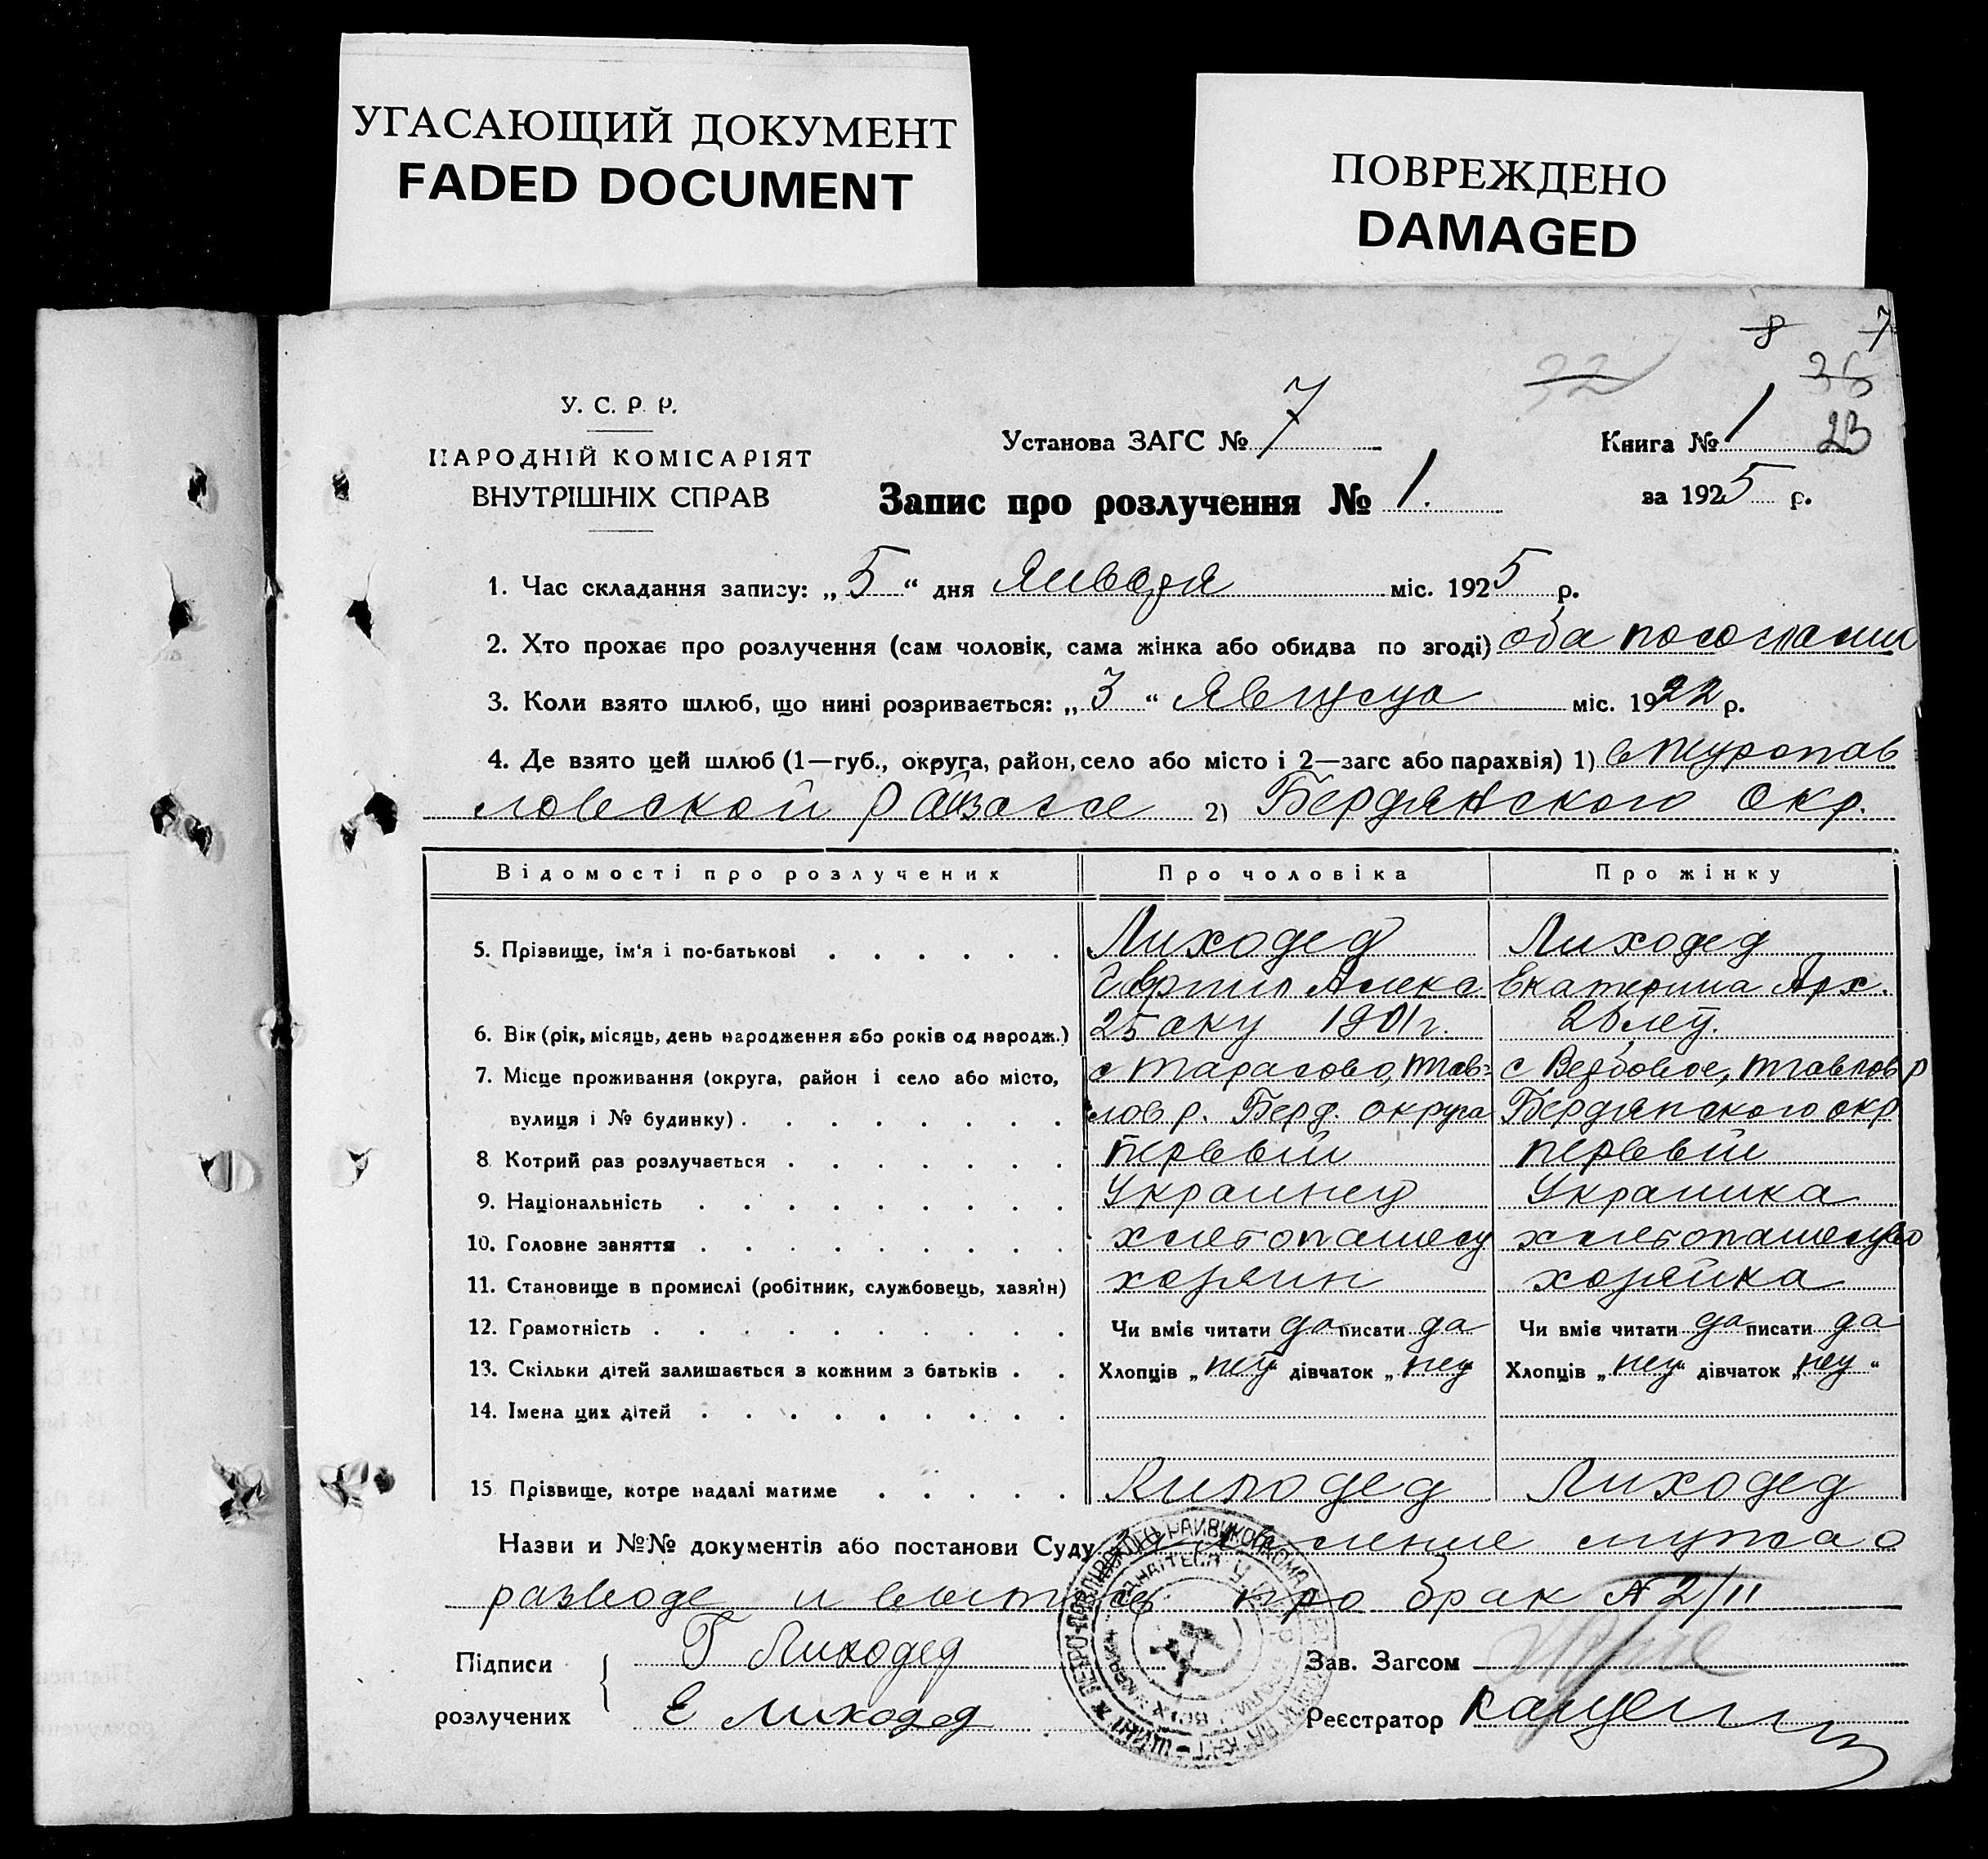 УГАСАЮЩИЙ ДОКУМЕНТ
FADED DOCUMENT
ПОВРЕЖДЕНО
DAMAGED
8 7
22 36
У. С. Р. Р.
НАРОДНІЙ КОМІСАРІЯТ
ВНУТРІШНІХ СПРАВ
Установа ЗАГС № 7
Книга № 1 23
Запис про розлучення № 1.
за 1925 р.
1. Час складання запису: „5“ дня Января міс. 1925 р.
2. Хто прохає про розлучення (сам чоловік, сама жінка або обидва по згоді) оба по согласии
3. Коли взято шлюб, що нині розривається: „3“ Августа міс. 1922 р.
4. Де взято цей шлюб (1—губ., округа, район, село або місто і 2—загс або парахвія) 1) в
ловской 2) Бердянского окр.
Відомості про розлучених Про чоловіка Про жінку
5. Прізвище, ім'я і по-батькові Лиходед Лиходед
Алекс Екатерина Арх.
6. Вік (рік, місяць, день народження або років од народж.) 25 1901 г. лет.
7. Місце проживання (округа, район і село або місто, с Тарасово, Пав- с Вербовое, Павлов р
вулиця і № будинку) лов р. Берд. округа Бердянского окр
8 Котрий раз розлучається первый первый
9. Національність Украинец Украинка
10. Головне заняття хлебопашест хлебопашество
11. Становище в промислі (робітник, службовець, хазяїн) хозяин хозяйка
12. Грамотність Чи вміє читати да писати да Чи вміє читати да писати да
13. Скільки дітей залишається з кожним з батьків Хлопців „нет“ дівчаток „нет Хлопців „нет“ дівчаток „нет“
14. Імена цих дітей
15 Прізвище, котре надалі матиме Лиходед Лиходед
Назви и №№ документів або постанови Суду заявление мужа о
разводе и выпись про брак № 2/11
Підписи Г Лиходед Зав. Загсом
розлучених Е Лиходед Реєстратор